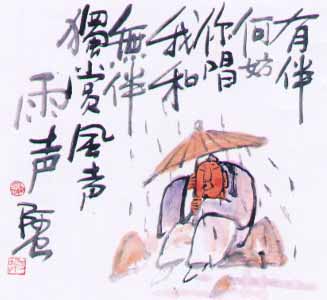 有伴
何妨
你唱
我和
無伴
獨赏風声
雨声